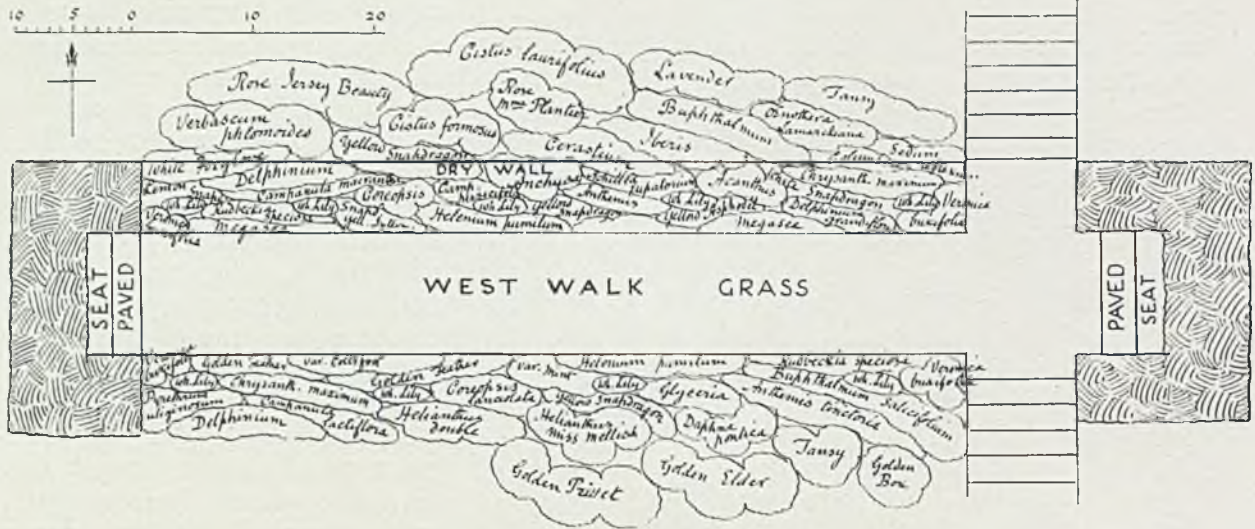 10 5 0 10 20
Cistus laurifolius
Lavender
Tansy
Rose Jersey Beauty
Rose Mme Plantier
Buphthalmum
Œnothera Lamarckiana
Verbascum phlomoides
Cistus formosus
Iberis
Yellow Snapdragon
Cerastium
Sedum
White Foxglove
Delphinium
DRY WALL
Anchusa
Achillea
Eupatorium
Acanthus
White Snapdragon
Chrysanth. maximum
Lemon
Campanula macrantha
Coreopsis
Camp. persicifolia
Anthemis
Wh. Lily
Yellow Asphodel
Delphinium grandiflora
Wh. Lily
Veronica buxifolia
Wh. Lily
Rudbeckia speciosa
Wh. Lily
Snap. yell.
Wh. Lily
Yellow Snapdragon
Megasea
Helenium pumilum
Megasea
SEAT
PAVED
WEST WALK GRASS
PAVED
SEAT
Golden Feather
Golden Feather
Var. Mint
Helenium pumilum
Rudbeckia speciosa
Veronica buxifolia
Wh. Lily
Chrysanth. maximum
Wh. Lily
Coreopsis lanceolata
Wh. Lily
Glyceria
Buphthalmum salicifolium
Wh. Lily
Pyrethrum uliginosum
Campanula lactiflora
Yellow Snapdragon
Anthemis tinctoria
Delphinium
Helianthus double
Helianthus Miss Mellish
Daphne pontica
Tansy
Golden Box
Golden Privet
Golden Elder